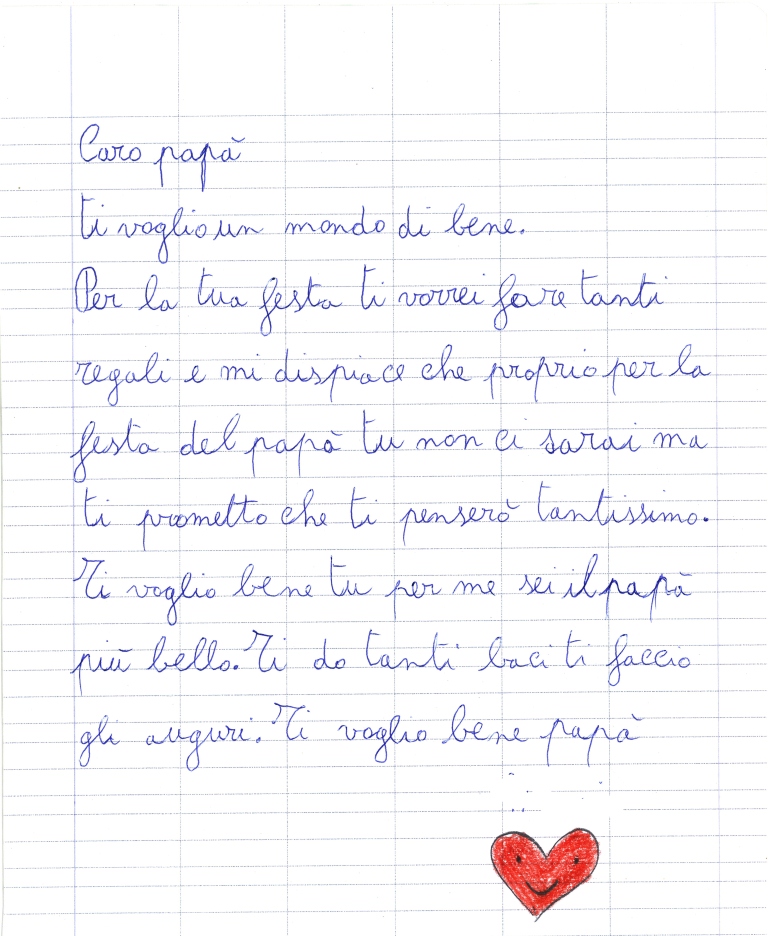 Caro papà
ti voglio un mondo di bene.
Per la tua festa ti vorrei fare tanti
regali e mi dispiace che proprio per la
festa del papà tu non ci sarai ma
ti prometto che ti penserò tantissimo.
Ti voglio bene tu per me sei il papà
più bello. Ti do tanti baci ti faccio
gli auguri. Ti voglio bene papà